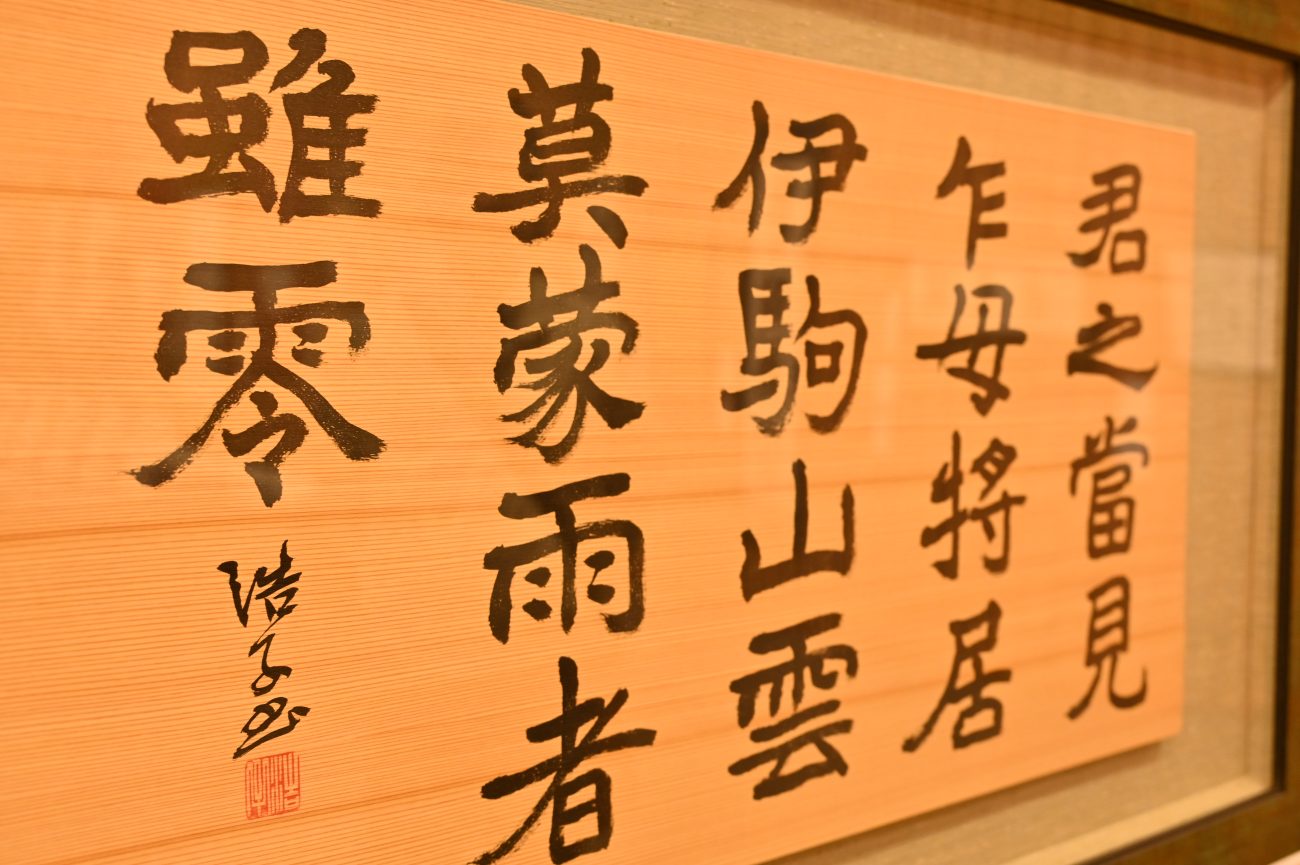 君之當見
乍母将居
伊駒山雲
莫蒙雨者
雖零
浩子书